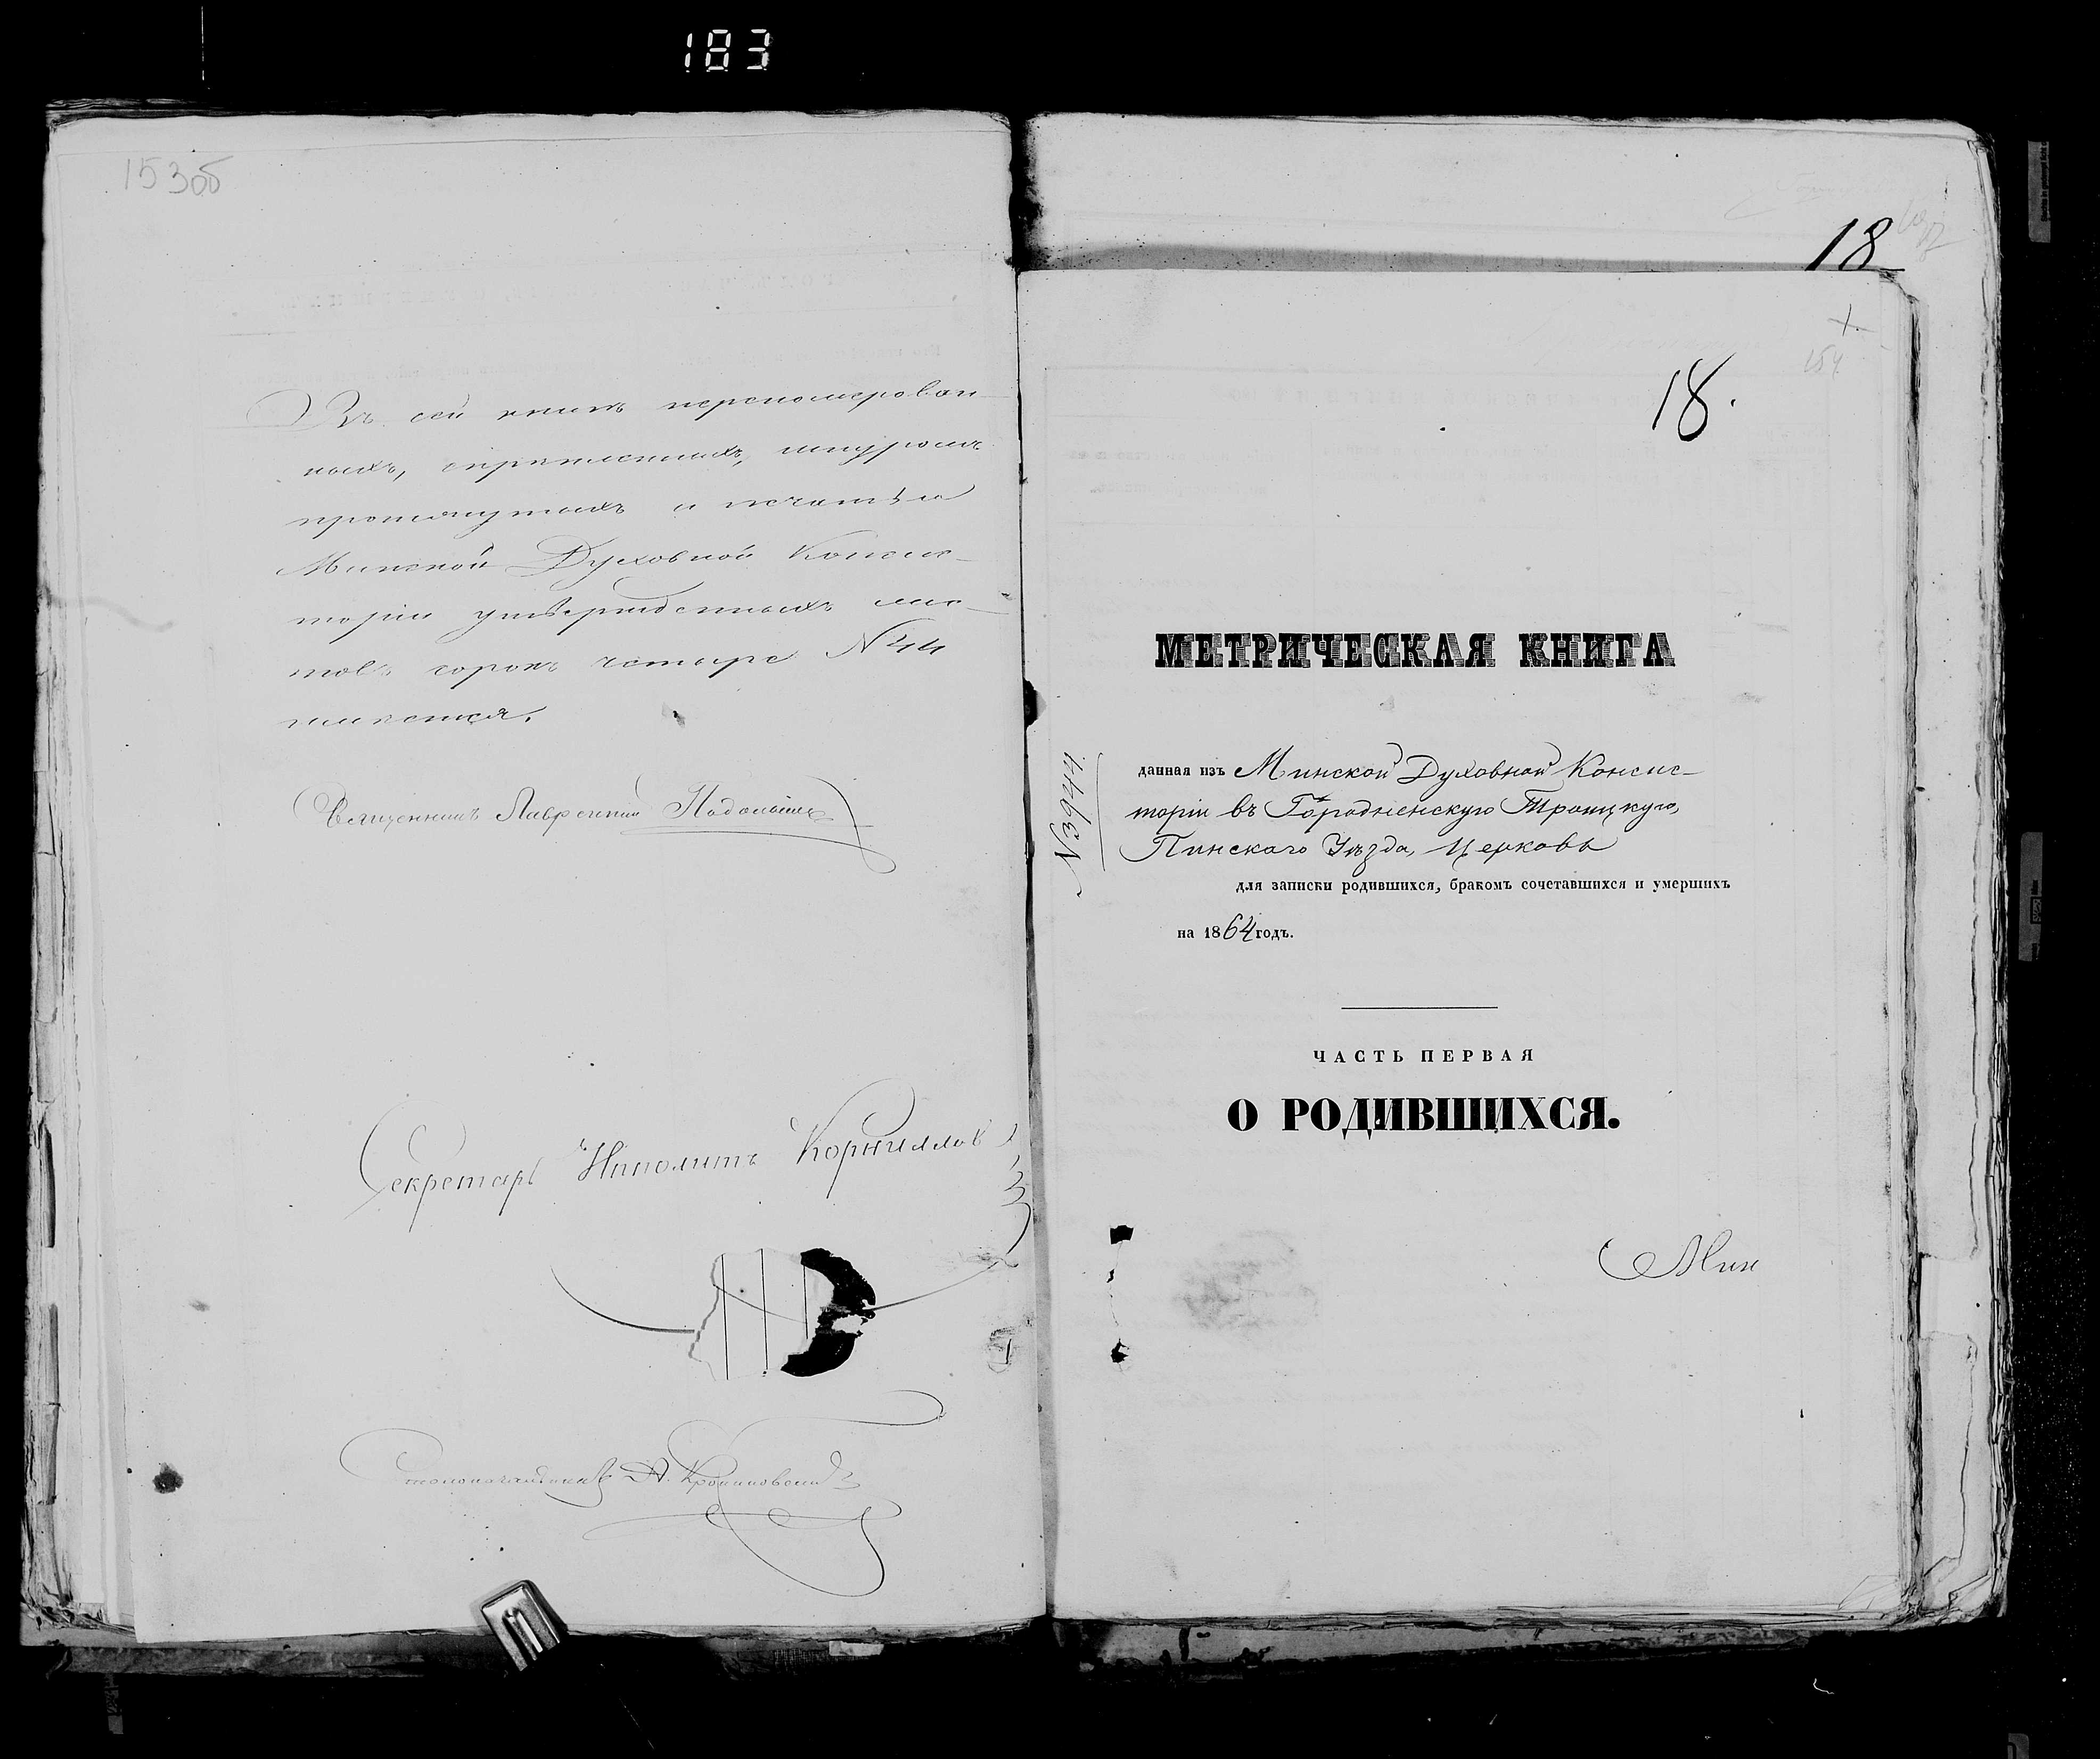 183
153об
Въ сей книгѣ перенумерован-
ныхъ, скрѣпленныхъ, шнуромъ
протянутыхъ и печатью
Минской Духовной Консис-
торіи утвержденныхъ лис-
товъ сорокъ четыре №44
имѣется.
Священникъ Лаврентій
Секретарь Иполитъ Корниловъ
Столоначальникъ А.
18
18.
1.
154
МЕТРИЧЕСКАЯ КНИГА
№3944
данная изъ Минской Духовной Консис-
торіи въ Городненскую Троицкую,
Пинскаго Уѣзда, Церковь
для записки родившихся, бракомъ сочетавшихся и умершихъ
на 1864 годъ.
ЧАСТЬ ПЕРВАЯ
О РОДИВШИХСЯ.
Мин